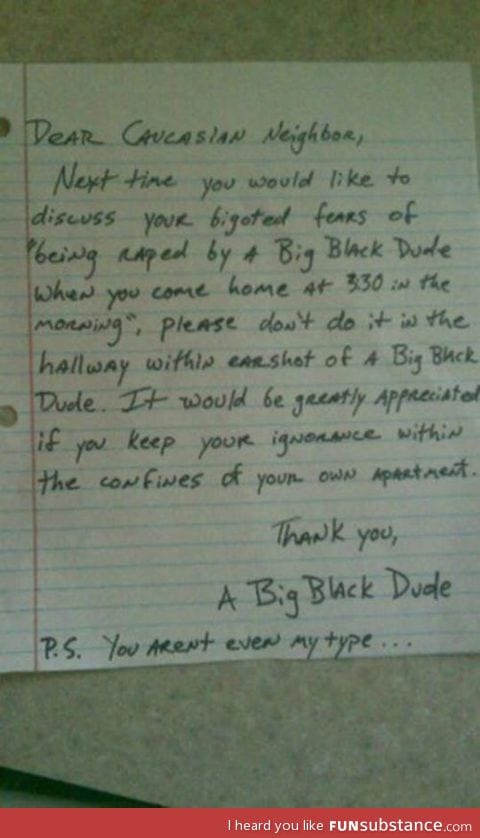 Dear Caucasian Neighbor,
Next time you would like to
discuss your bigoted fears of
"being raped by A Big Black Dude
when you come home at 3:30 in the
morning", please don't do it in the
hallway within earshot of A Big Black
Dude. It would be greatly appreciated
if you keep your ignorance within
the confines of your own apartment.
Thank you,
A Big Black Dude
P.S. You arent even my type...
I heard you like FUNsubstance.com